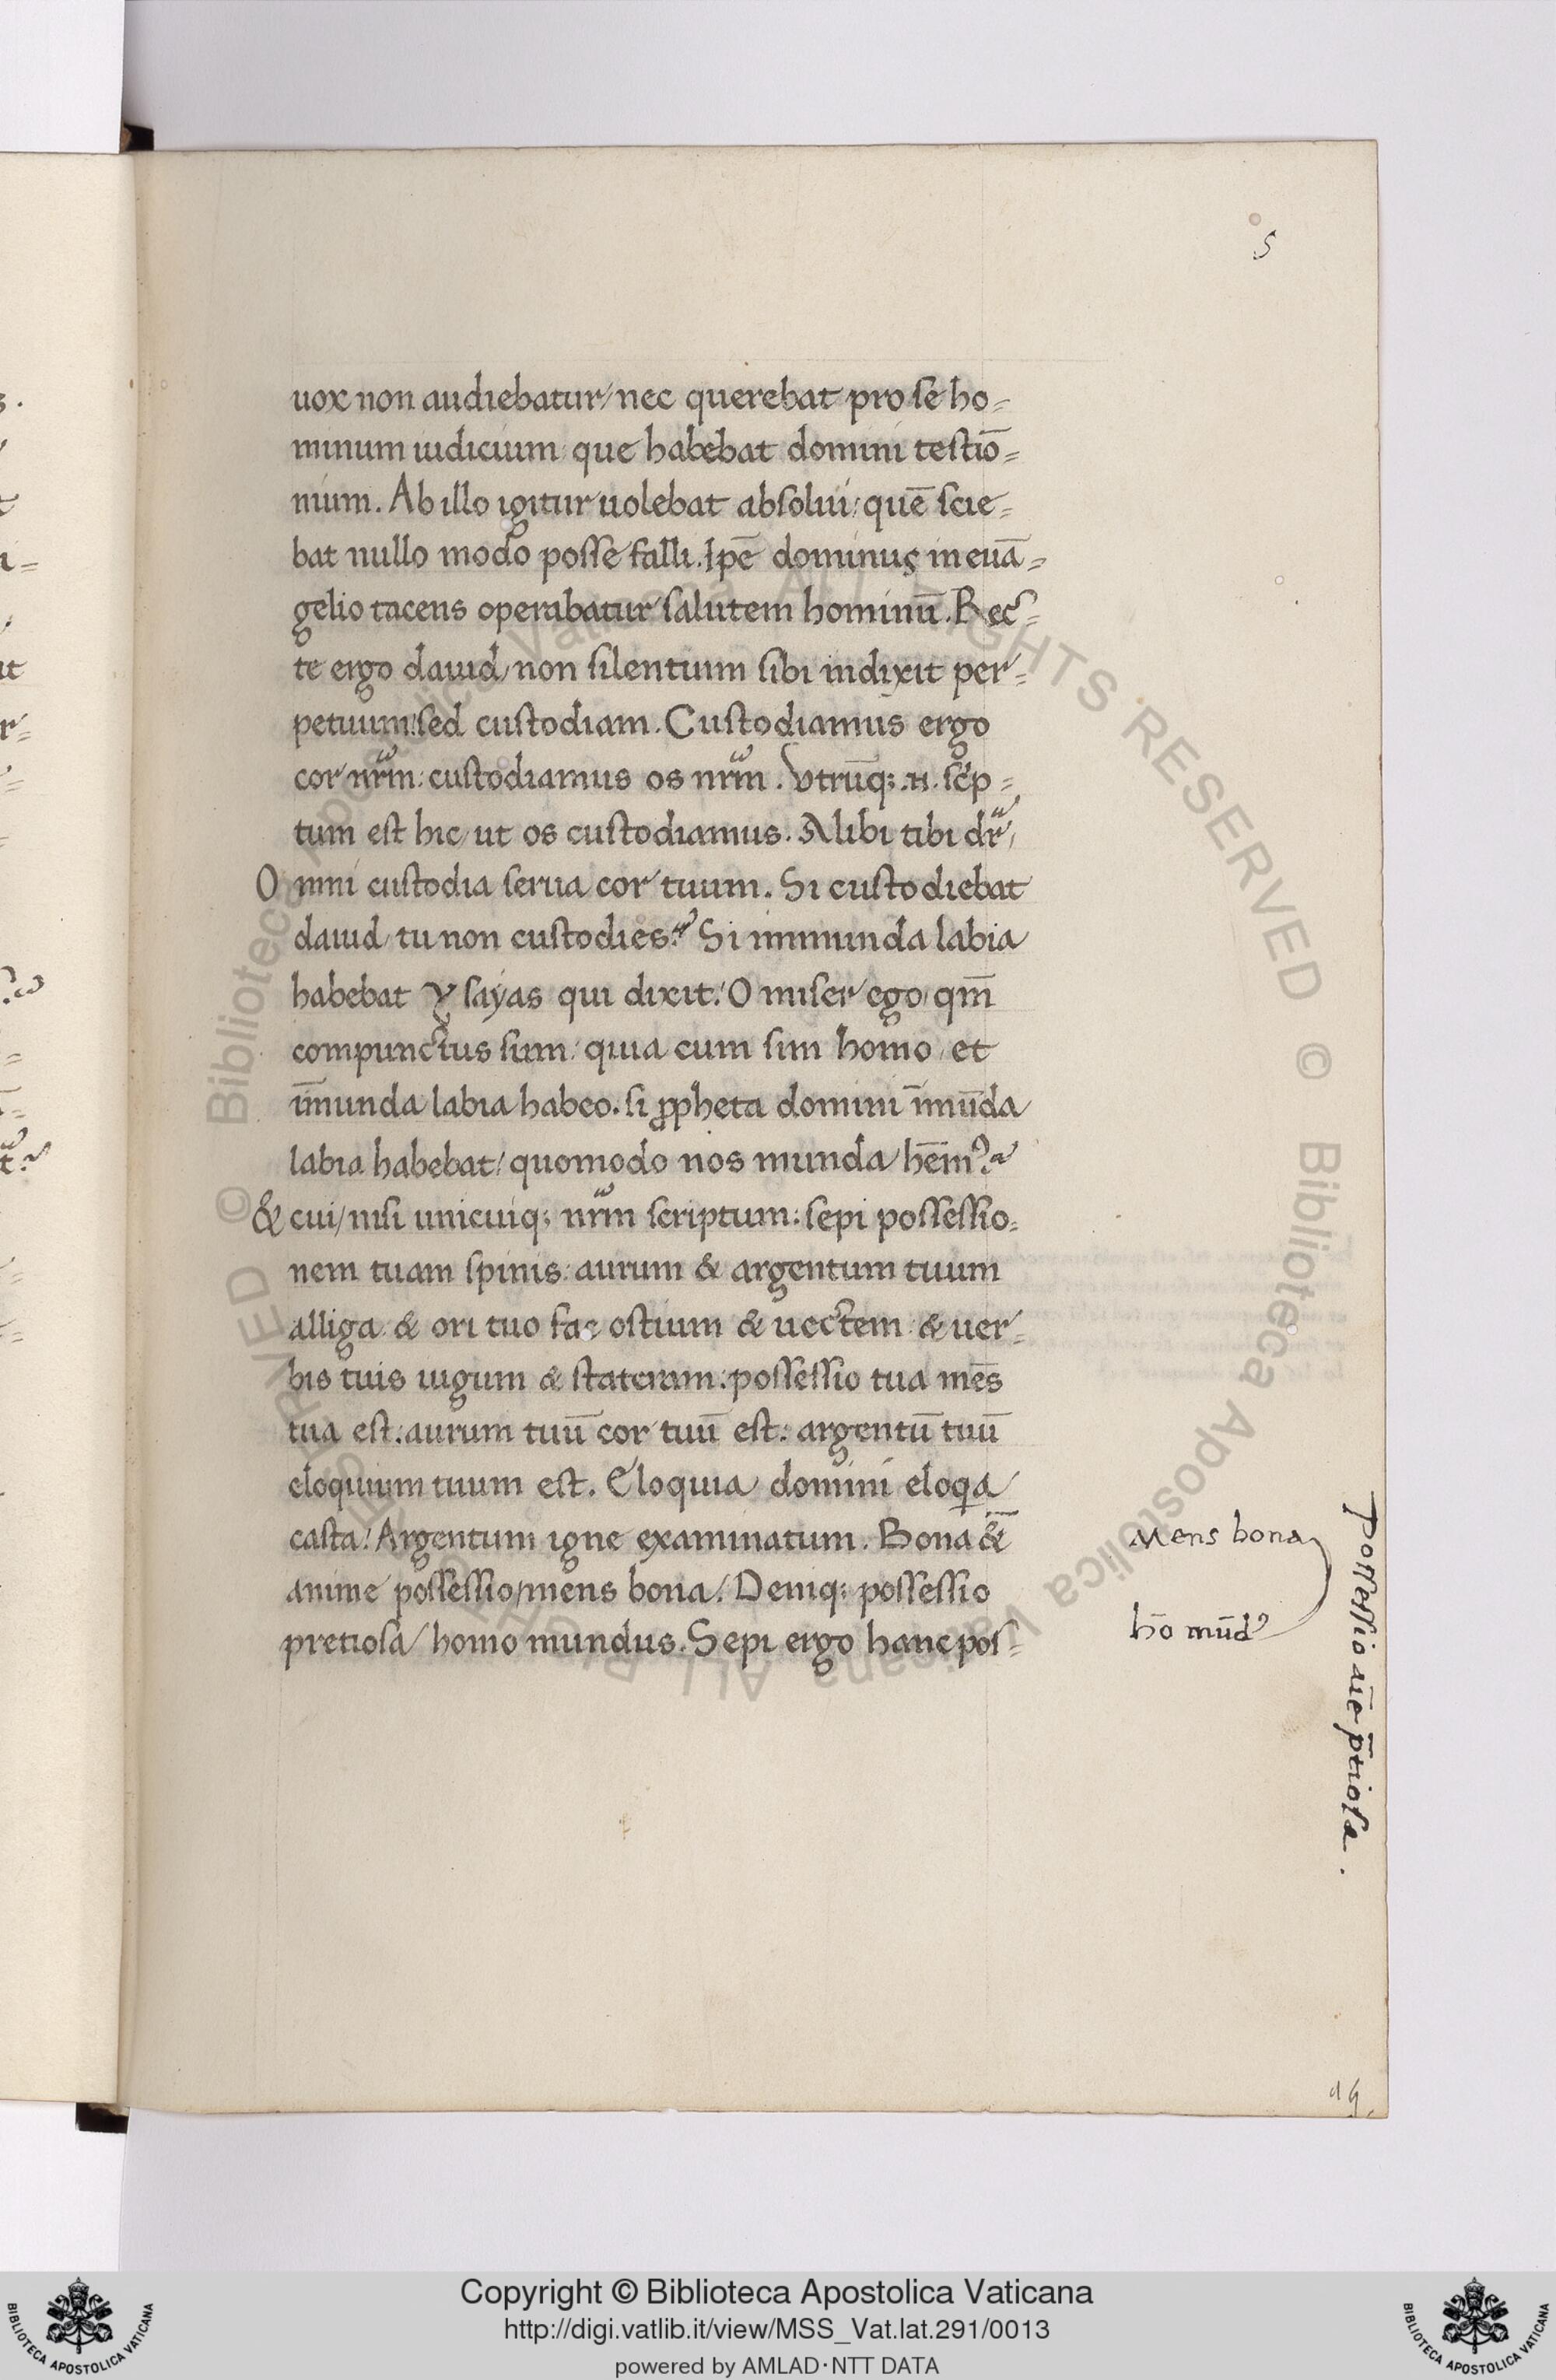 5
uox non audiebatur/ nec querebat pro se ho=
minum iudicium que habebat domini testiō=
nium. Ab illo igitur uolebat absolui: quē scie=
bat nullo modo posse falli. Ipē dominus in euā=
gelio tacens operabatur salutem hominū. Rec=
te ergo dauid/ non silentium sibi indixit per=
petuum: sed custodiam. Custodiamus ergo
cor nr̄m: custodiamus os nr̄m. Vtrūq; .n. scͥp=
tum est hic/ ut os custodiamus. Alibi tibi dr̄/
Omni custodia serua cor tuum. Si custodiebat
dauid/ tu non custodies? Si immunda labia
habebat Ysayas qui dixit: O miser ego/ qm̄
compunctus sum: quia cum sim homo/ et
īmunda labia habeo. si ꝓpheta domini īmūda
labia habebat/ quomodo nos munda hēmꝰ?
& cui/ nisi unicuiq; nr̄m scriptum: sepi possessio=
nem tuam spinis: aurum & argentum tuum
alliga: & ori tuo fac ostium & uectem: & uer=
bis tuis iugum & stateram: possessio tua mēs
tua est: aurum tuū cor tuū est: argentū tuū
eloquium tuum est. Eloquia domini eloqͥa
casta/ Argentum igne examinatum. Bona &̄
anime possessio/ mens bona/ Deniq; possessio
pretiosa/ homo mundus. Sepi ergo hanc pos=
Mens bona
hō mūdꝰ
Possessio aīe p̄tiosa.
Copyright © Biblioteca Apostolica Vaticana
http://digi.vatlib.it/view/MSS_Vat.lat.291/0013
powered by AMLAD·NTT DATA